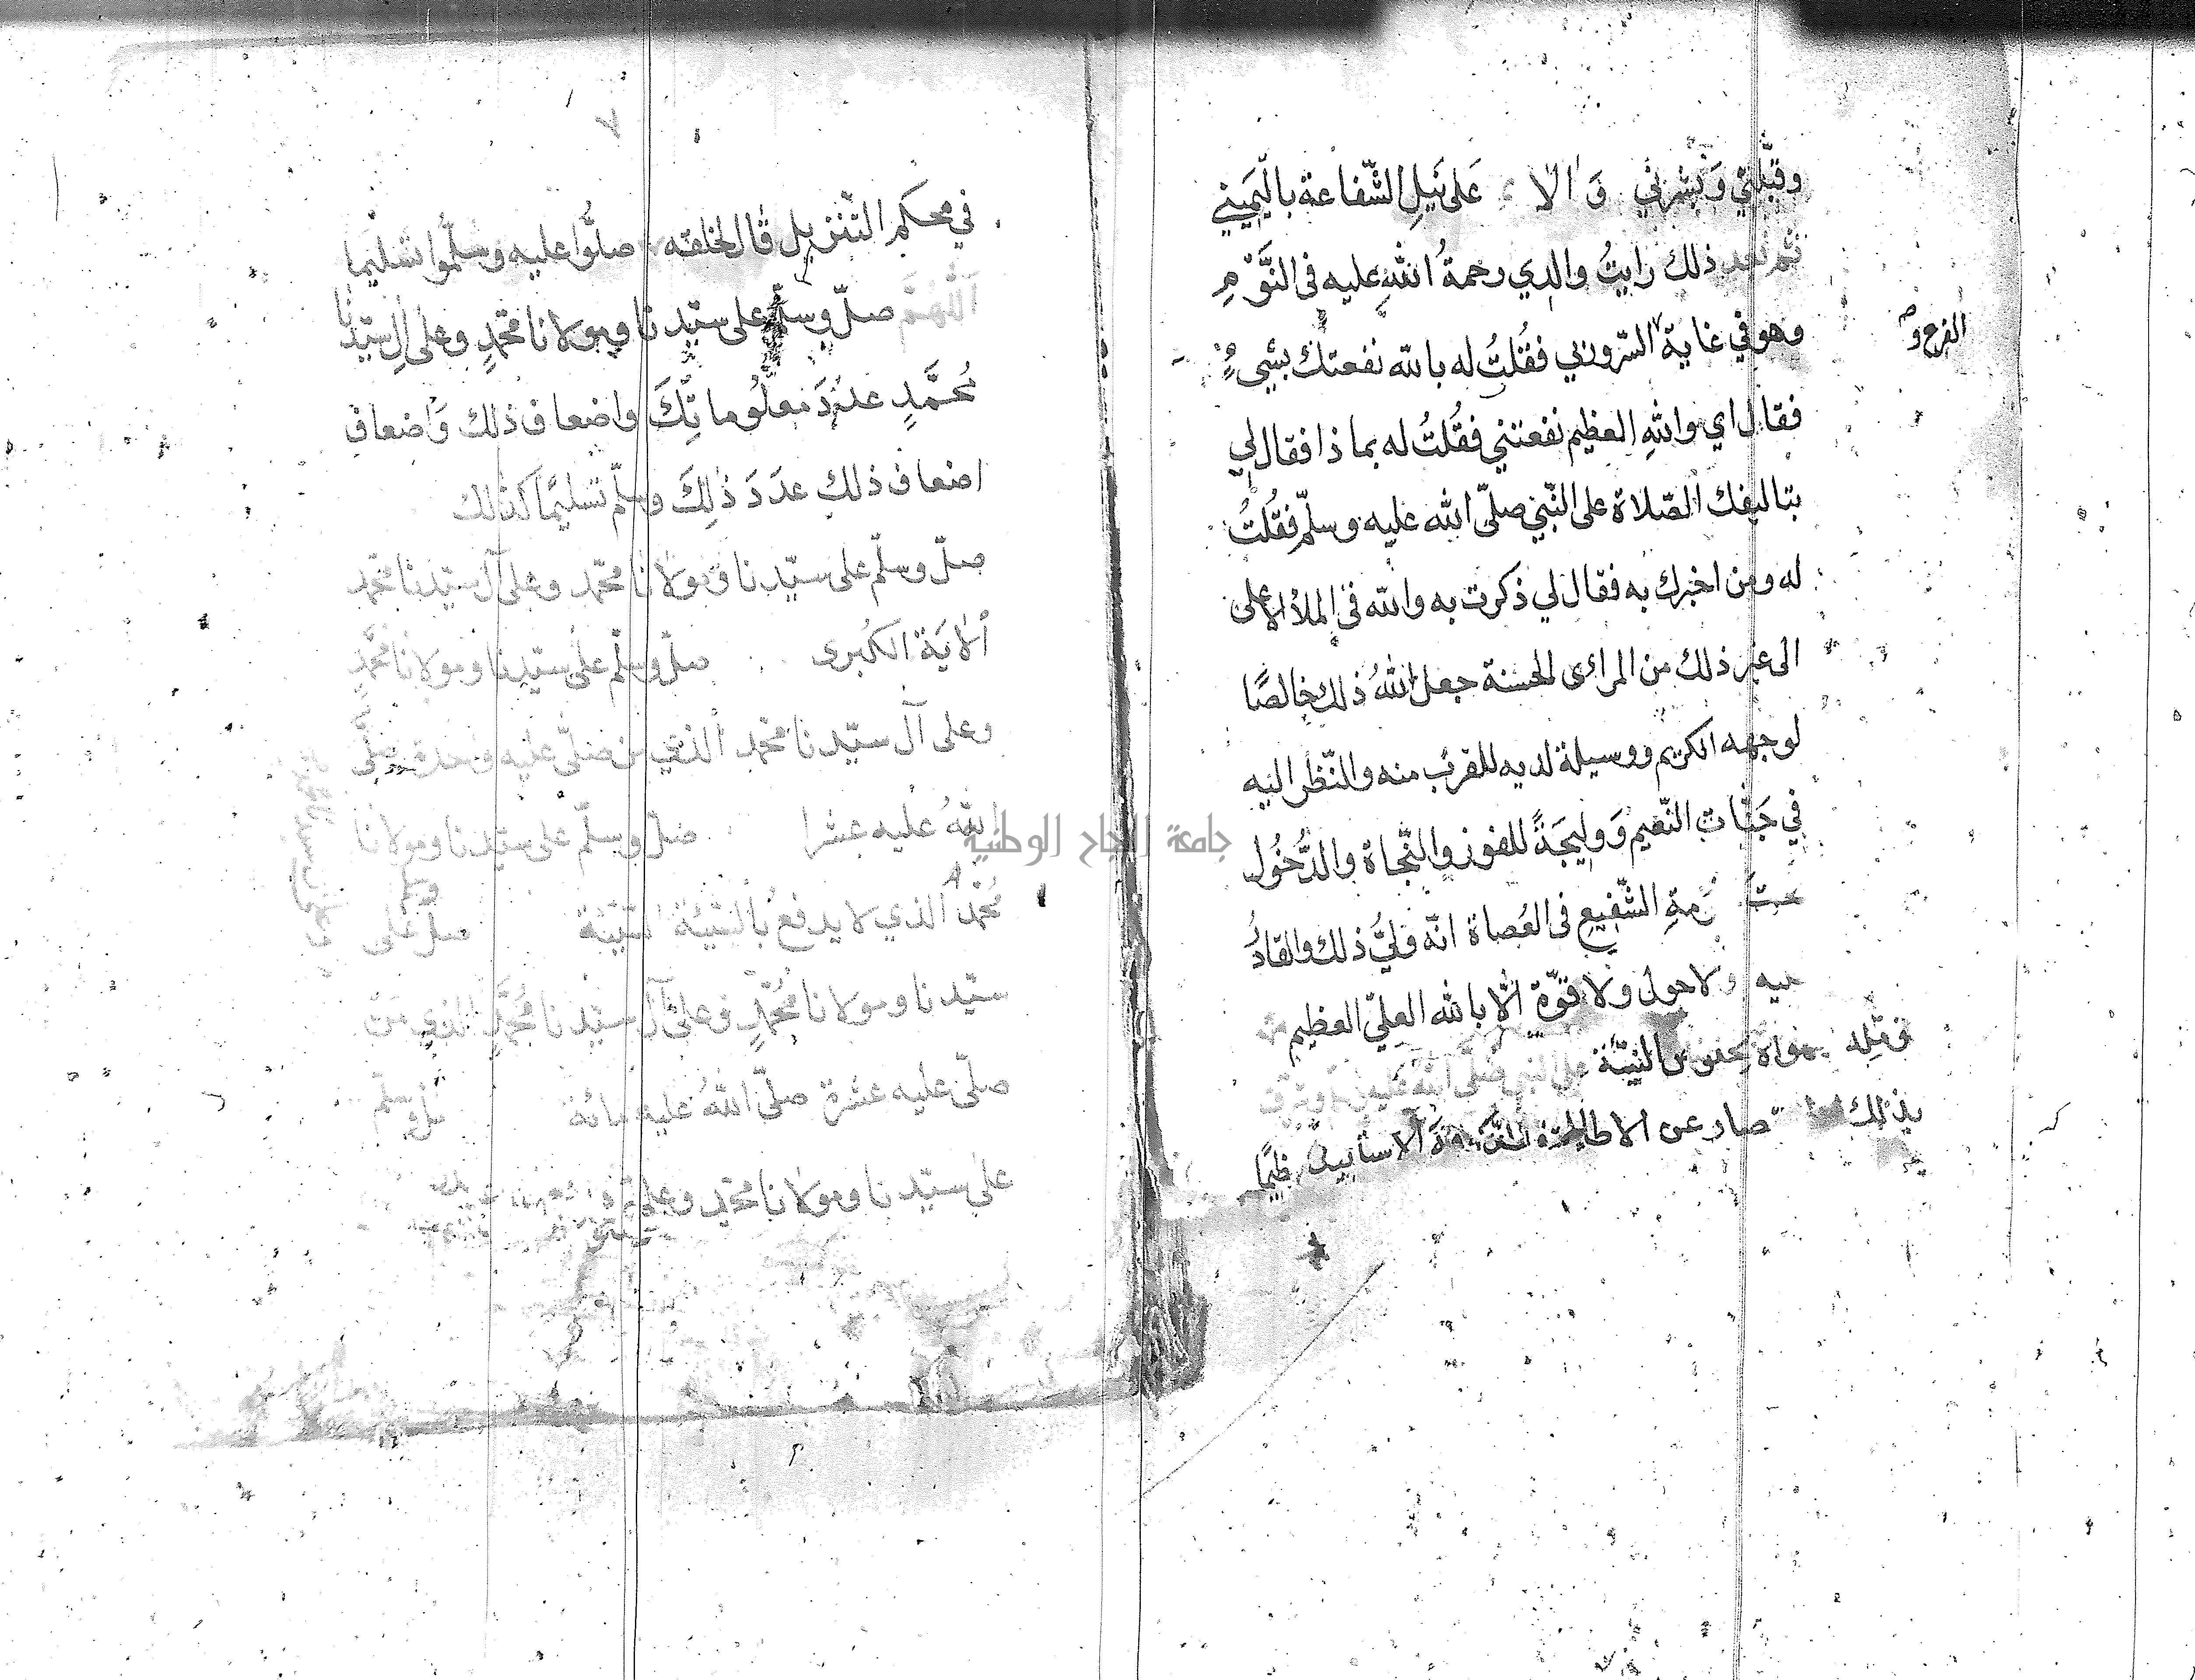 وقبّلني وبشرني والا على نيل الشّفاعة باليّمين
ثم بعد ذلك رايتُ والدي رحمةُ اللهِ عليه في النَّوْمِ
وهو في غاية السّرور بي فقُلتُ له بالله نفعتك بشيءٍ
الفرع و
فقال اي واللهِ العظيم نفعتني فقُلتُ له بما ذا فقال لي
بتاليفك الصّلاة على النّبيّ صلّى الله عليه وسلّم فقُلتُ
له ومن اخبرك به فقال لي ذكرت به والله في الملأ الاعلى
الى غير ذلك من المرائى الحسنة جعل اللهُ ذلك خالصًا
لوجهه الكريم ووسيلة لديه للقرب منه والنّظر اليه
في جَنّات النّعيم وَوليجَةً للفوز والنّجاة والدُّخُول
الشّفيع في العُصاة انّه وليُّ ذلك والقادرُ
عليه ولا حول ولا قوّة الّا بالله العليّ العظيم
بالنيّة على النبي صلّى الله عليه
بذلك صار عن الاطالة
٧
في محكم التّنزيل قال لخلقه صلُّوا عليه وسلِّموا تسليما
اللّهمّ صلّ وسلّم على سيّدنا ومولانا محمّدٍ وعلى آلِ سيّدنا
مُحَمَّدٍ عدَدَ معلُوماتِكَ واضعاف ذلك وَاضعاف
اضعاف ذلك عدَدَ ذلِكَ وسلّم تسليمًا كذلك
صلّ وسلّم على سيّدنا ومولانا محمّد وعلى آل سيّدنا محمّد
الايَة الكُبرى صلّ وسلّم على سيّدنا ومولانا محمّدٍ
وعلى آل سيّدنا محمّد الذي من صلّى عليه مرة صلّى
اللهُ عليه عشرا صلّ وسلّم على سيّدنا ومولانا
مُحمّد الذي لا يدفعُ بالسّيّئة السّيّئة صل وسلم على
سيّدنا ومولانا مُحمّدٍ وعلى آل سيّدنا مُحمَّدٍ الذي مَن
صلّى عليه عشرة صلّى اللهُ عليه مائة صل وسلّم
على سيّدنا ومولانا محمّد وعلى
جامعة النجاح الوطنية